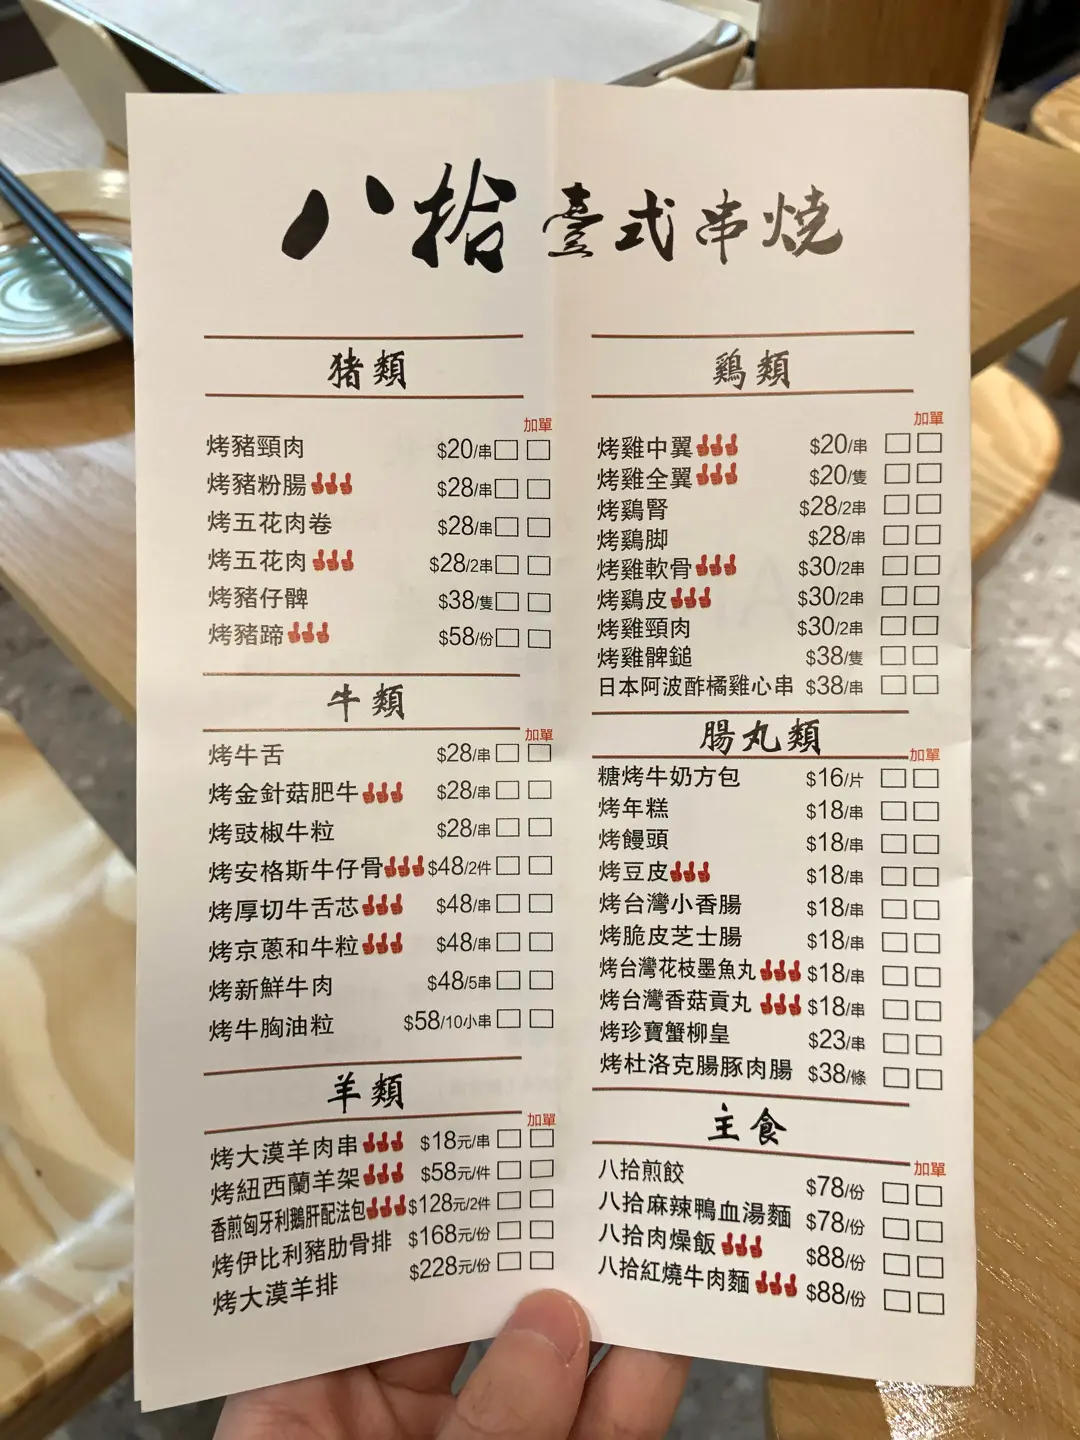 八拾 臺式串燒
猪類
加單
烤豬頸肉 $20/串
烤豬粉腸 $28/串
烤五花肉卷 $28/串
烤五花肉 $28/2串
烤豬仔髀 $38/隻
烤豬蹄 $58/份
牛類
加單
烤牛舌 $28/串
烤金針菇肥牛 $28/串
烤豉椒牛粒 $28/串
烤安格斯牛仔骨 $48/2件
烤厚切牛舌芯 $48/串
烤京蔥和牛粒 $48/串
烤新鮮牛肉 $48/5串
烤牛胸油粒 $58/10小串
羊類
加單
烤大漠羊肉串 $18元/串
烤紐西蘭羊架 $58元/件
香煎匈牙利鵝肝配法包 $128元/2件
烤伊比利豬肋骨排 $168元/份
烤大漠羊排 $228元/份
鷄類
加單
烤雞中翼 $20/串
烤雞全翼 $20/隻
烤鷄腎 $28/2串
烤鷄脚 $28/串
烤雞軟骨 $30/2串
烤鷄皮 $30/2串
烤雞頸肉 $30/2串
烤雞髀鎚 $38/隻
日本阿波酢橘雞心串 $38/串
腸丸類
加單
糖烤牛奶方包 $16/片
烤年糕 $18/串
烤饅頭 $18/串
烤豆皮 $18/串
烤台灣小香腸 $18/串
烤脆皮芝士腸 $18/串
烤台灣花枝墨魚丸 $18/串
烤台灣香菇貢丸 $18/串
烤珍寶蟹柳皇 $23/串
烤杜洛克腸豚肉腸 $38/條
主食
加單
八拾煎餃 $78/份
八拾麻辣鴨血湯麵 $78/份
八拾肉燥飯 $88/份
八拾紅燒牛肉麵 $88/份